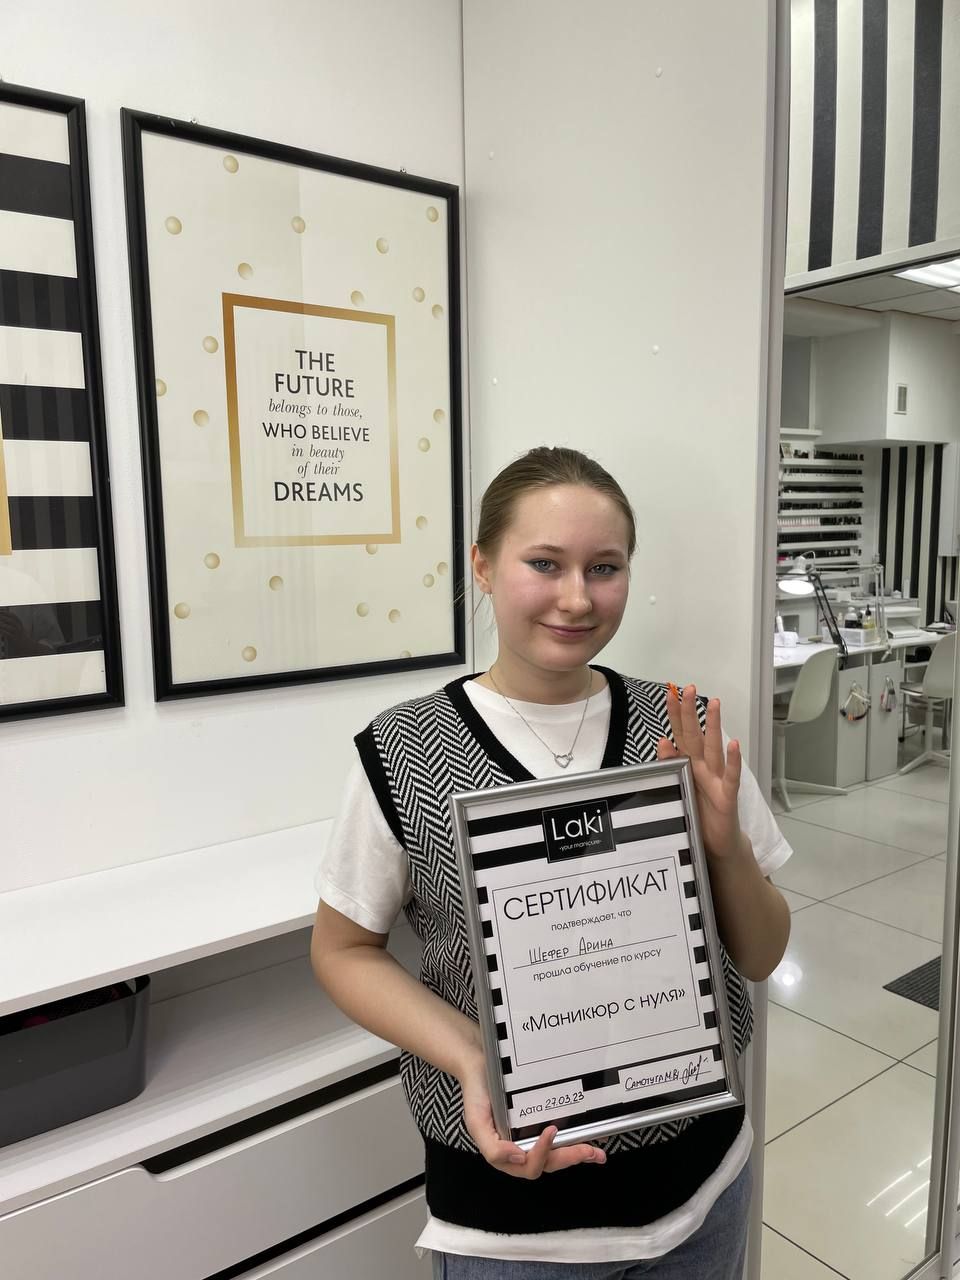 THE
FUTURE
belongs to those,
WHO BELIEVE
in beauty
of their
DREAMS
Laki
-your manicure-
СЕРТИФИКАТ
подтверждает, что
Шефер Арина
прошла обучение по курсу
«Маникюр с нуля»
дата 27.03.23
Самотуга М.В.